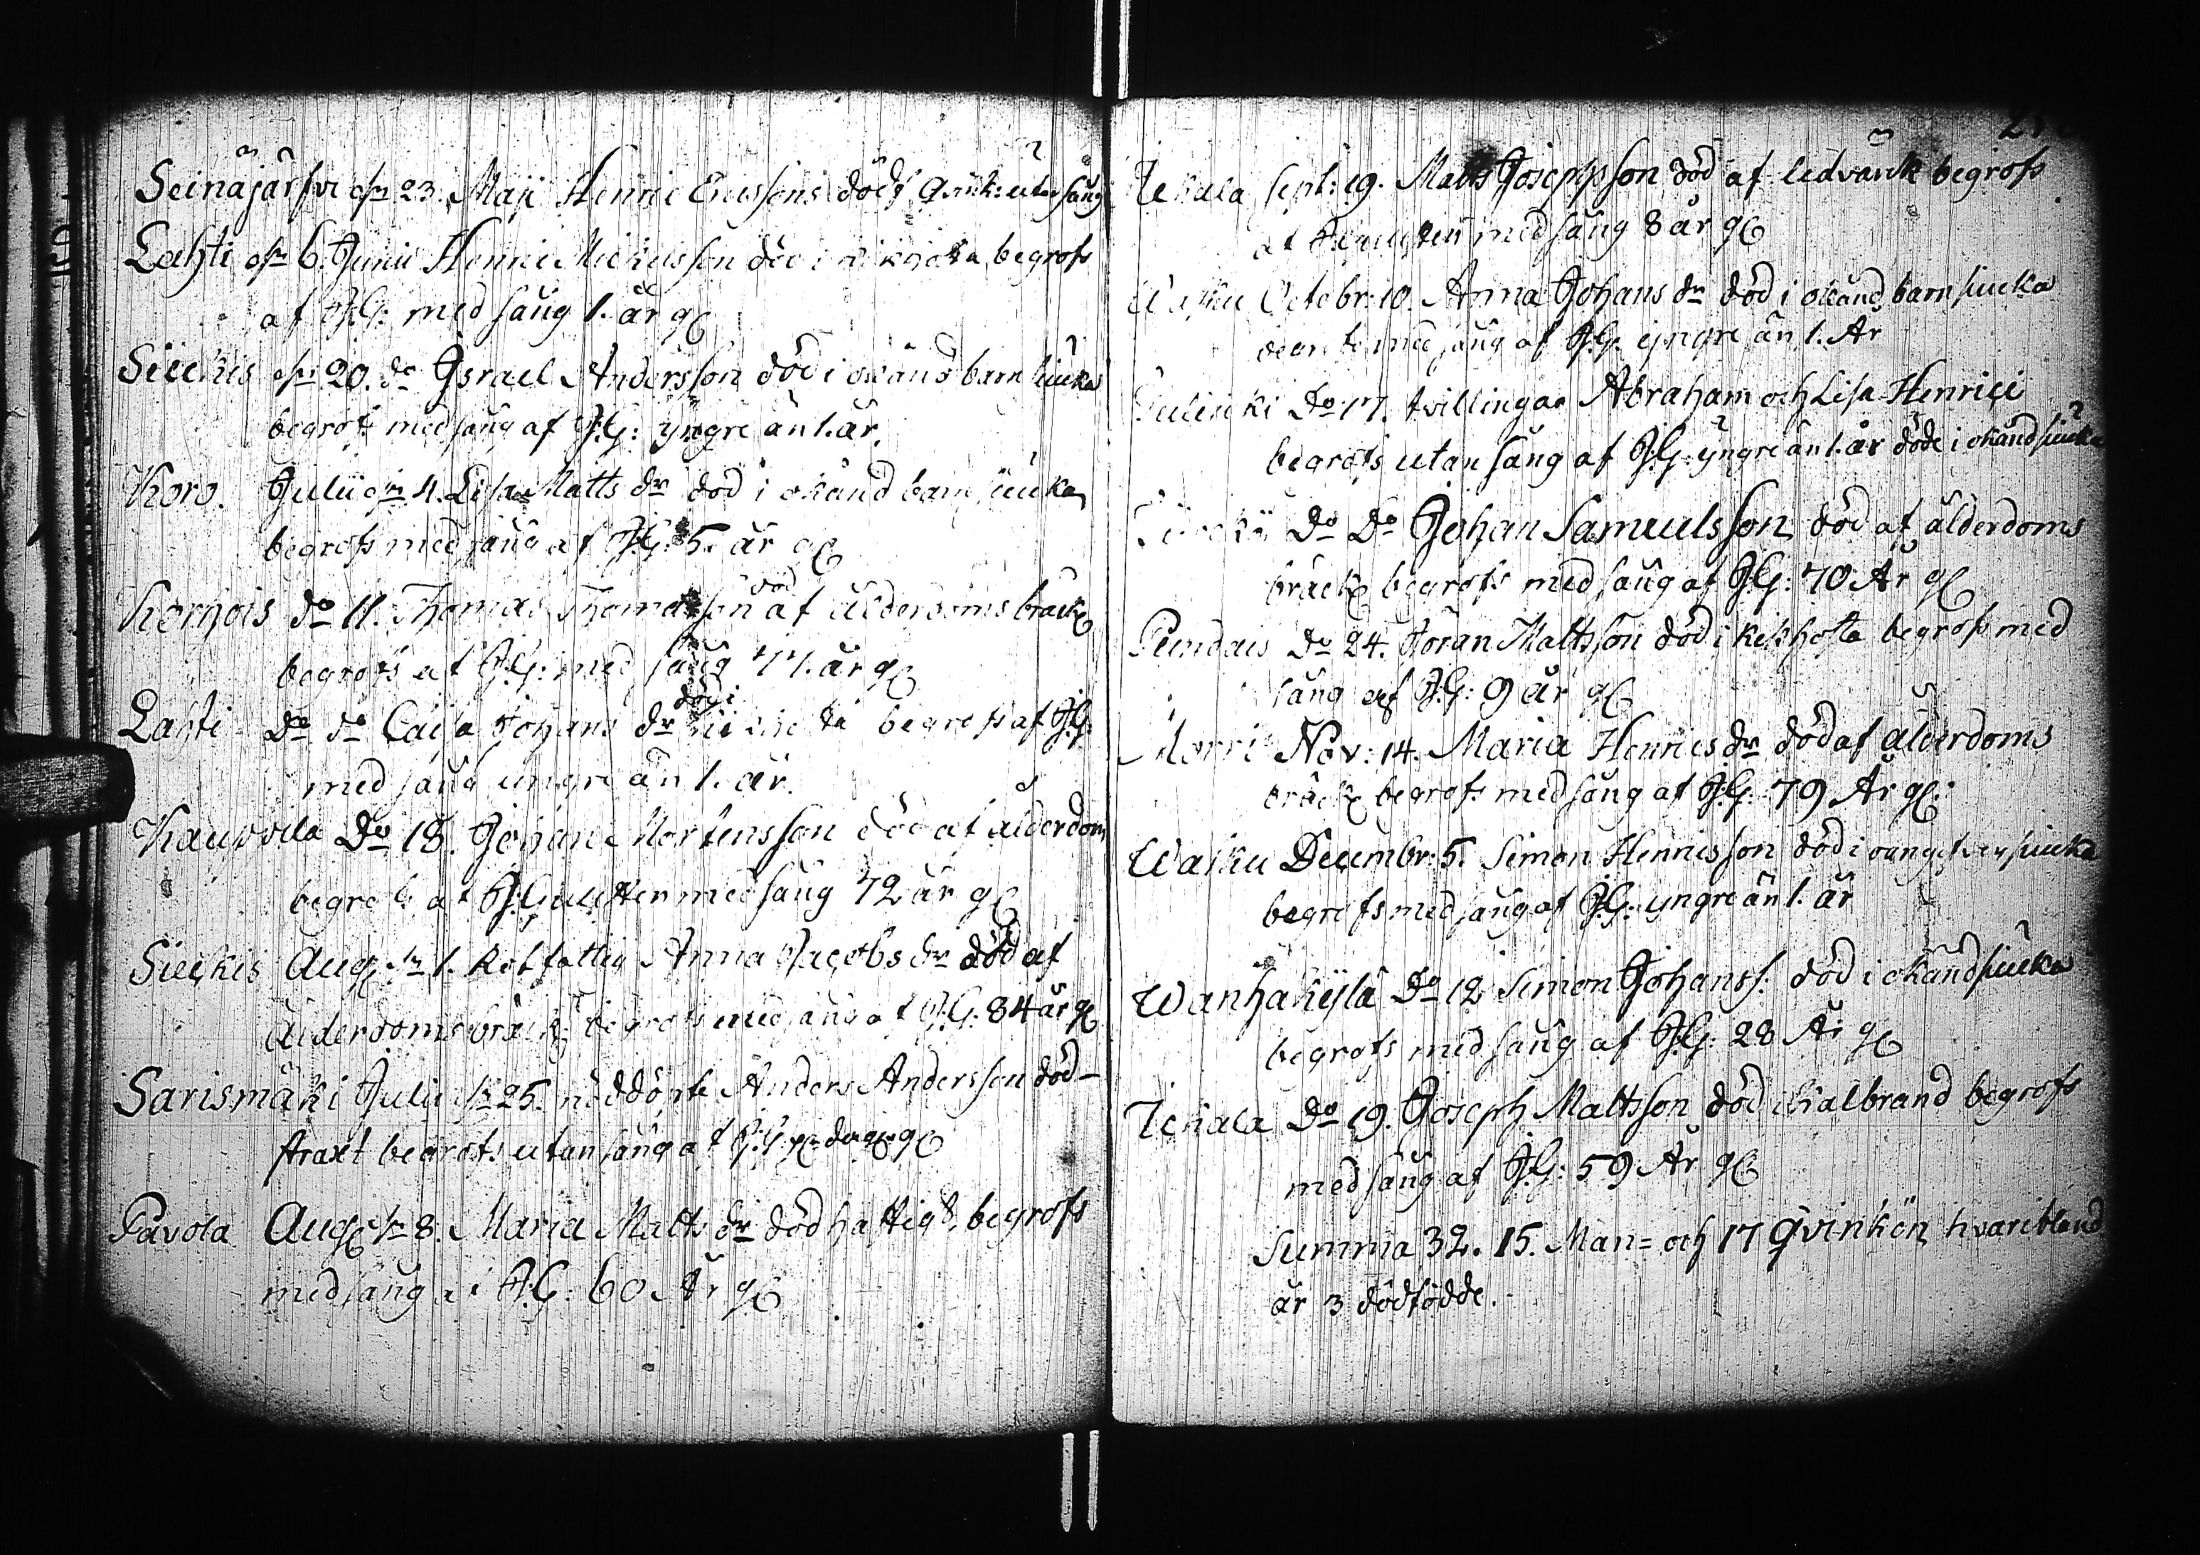 Seinäjärfvi d. 23. Maji Henric Ericssons dödf. qvink: utan sång
Lahti d. 6. Junii Henric Mickelsson död i kikhosta begrofs
af J.G: med sång 1. år gl
Sieckis d. 20. do Israel Andersson död i okänd barn siuka
begrofs med sång af J.G: yngre än 1. år.
Koro. Julii d. 4. Lisa Matts dr död i okänd barn siuka
begrofs med sång af J.G: 5. år gl
Korhois do 11. Thomas Thomasson död af ålderdoms bräckl
begrofs af J.G: med sång 77. år gl
Lahti do do Caisa Johans dr död i begrofs af J.G.
med sång yngre än 1. år.
Kauppila Do 18. Johan Mortensson död af ålderdom
begrofs af J: med sång 72 år gl
Sieckis Aug d. 1. Rotfattig Anna Jacobs dr död af
ålderdoms bräckl begrofs med sång af J.G: 84 år gl
Sarismäki Julii d. 25. nöddöpte Anders Andersson död
straxt begrofs utan sång af J.G
Pavola Aug d. 8. Maria Matts dr död hastigt, begrofs
med sång af J.G: 60 År gl
Ickala Sept: 19. Matts Josephsson död af ledvärk begrofs
af med sång 8 år gl
Octobr: 10. Anna Johans dr död i okänd barn siuka
begrofs med sång af J.G. yngre än 1. År
Do 17. tvillingar Abraham och Lisa Henrici
begrofs utan sång af J.G: yngre än 1. år döde i okänd siuka
Do Do Johan Samuelsson död af ålderdoms
bräckl begrofs med sång af J.G: 70 År gl
Pundais Do 24. Jöran Mattsson död i kikhosta begrofs med
sång af J.G: 9 år gl
Morri Nov: 14. Maria Henrics dr död af ålderdoms
bräckl begrofs med sång af J.G: 79 År gl.
Wasku Decembr: 5. Simon Henricsson död i siuka
begrofs med sång af J.G: yngre än 1. år
Wanhakylä Do 12 Simon Johanss: död i okänd siuka
begrofs med sång af J.G: 28 År gl
Ickala Do 19. Joseph Mattsson död i kalbrand begrofs
med sång af J.G: 59 År gl
Summa 32. 15. Man= och 17 Qvinkön hvaribland
är 3 dödfödde.